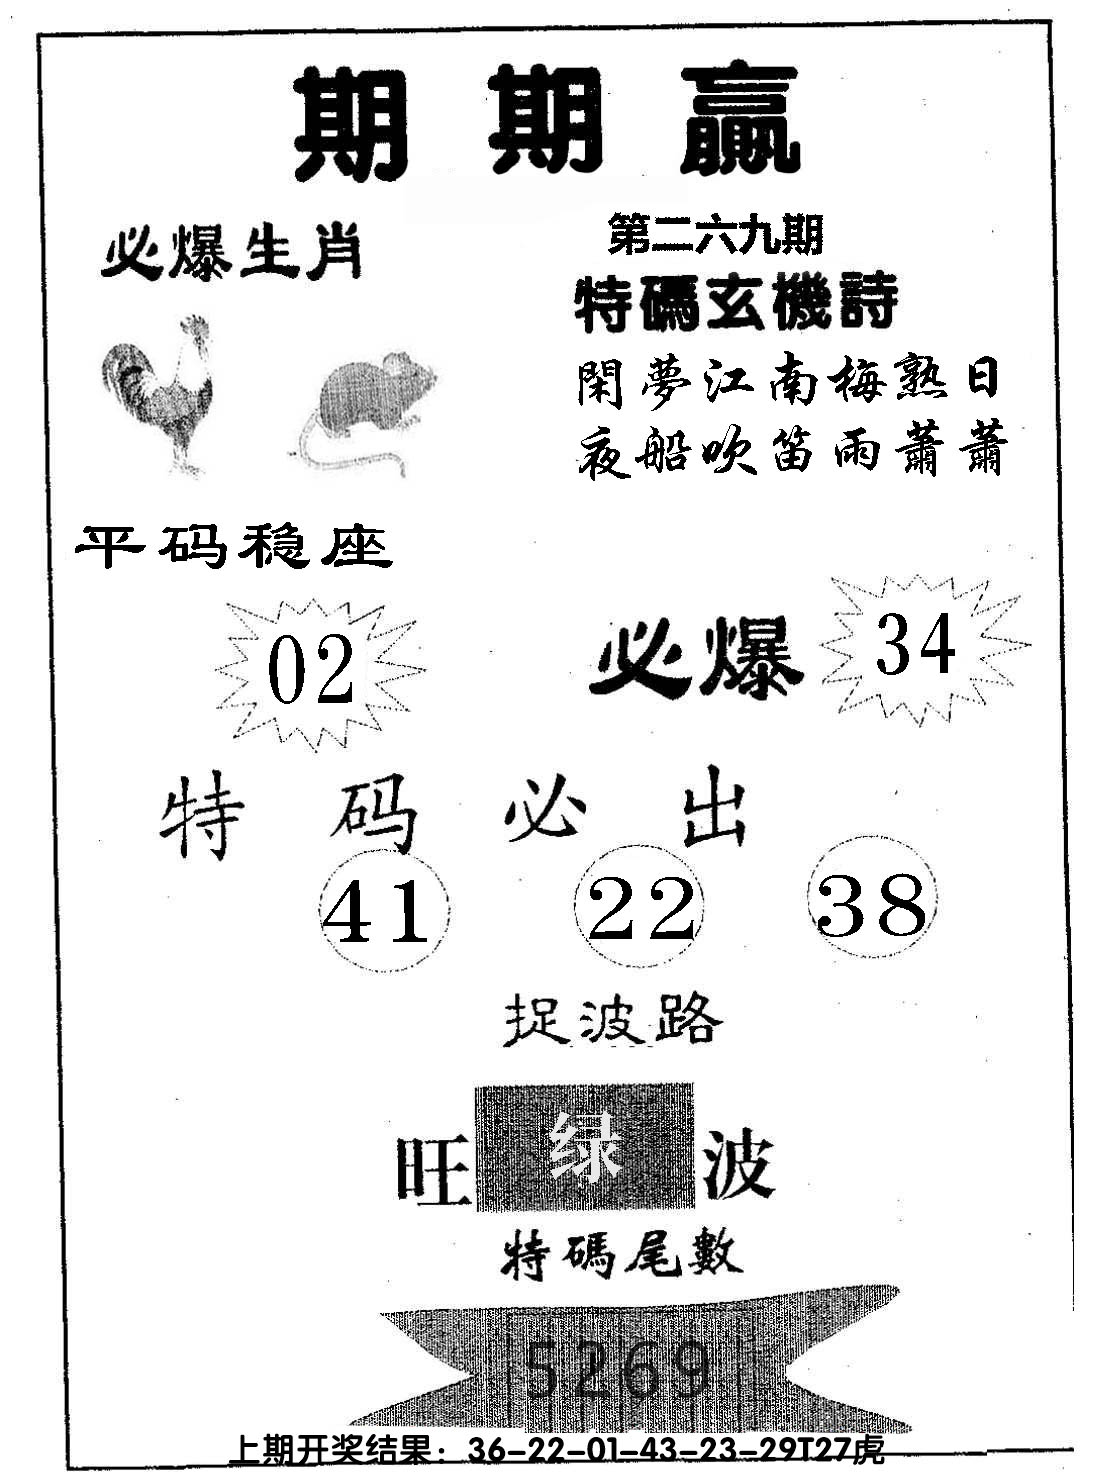 期期贏
必爆生肖
第二六九期
特碼玄機詩
閑夢江南梅熟日
夜船吹笛雨蕭蕭
平码稳座
02
必爆
34
特码必出
41 22 38
捉波路
旺 绿 波
特碼尾數
5269
上期开奖结果：36-22-01-43-23-29T27虎